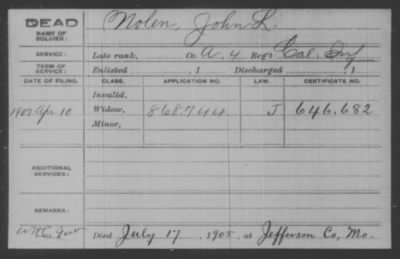 DEAD Nolen, John L.
NAME OF SOLDIER:
SERVICE: Late rank, Co. A, 4 Reg't Cal. Inf
TERM OF SERVICE: Enlisted , 1 Discharged , 1
DATE OF FILING. CLASS. APPLICATION NO. LAW. CERTIFICATE NO.
Invalid,
1907 Apr. 10 Widow, 868.744 J 646.682
Minor,
ADDITIONAL SERVICES:
REMARKS:
Died July 17, 1905, at Jefferson Co, Mo.